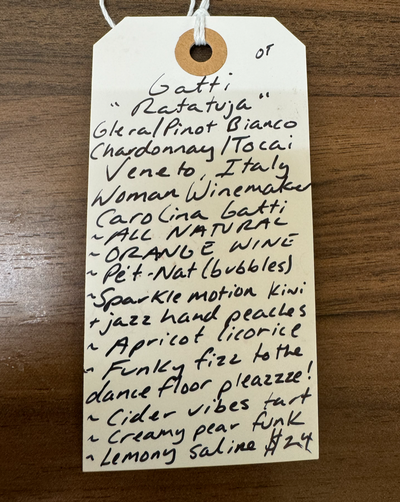 OT
Gatti
"Ratatuja"
Glera/Pinot Bianco
Chardonnay/Tocai
Veneto, Italy
Woman Winemaker
Carolina Gatti
~ ALL NATURAL
~ ORANGE WINE
~ Pét-Nat (bubbles)
~ Sparkle motion kiwi
+ jazz hand peaches
~ Apricot licorice
~ Funky fizz to the
dance floor pleazzze!
~ Cider vibes tart
~ Creamy pear funk
~ Lemony saline $24